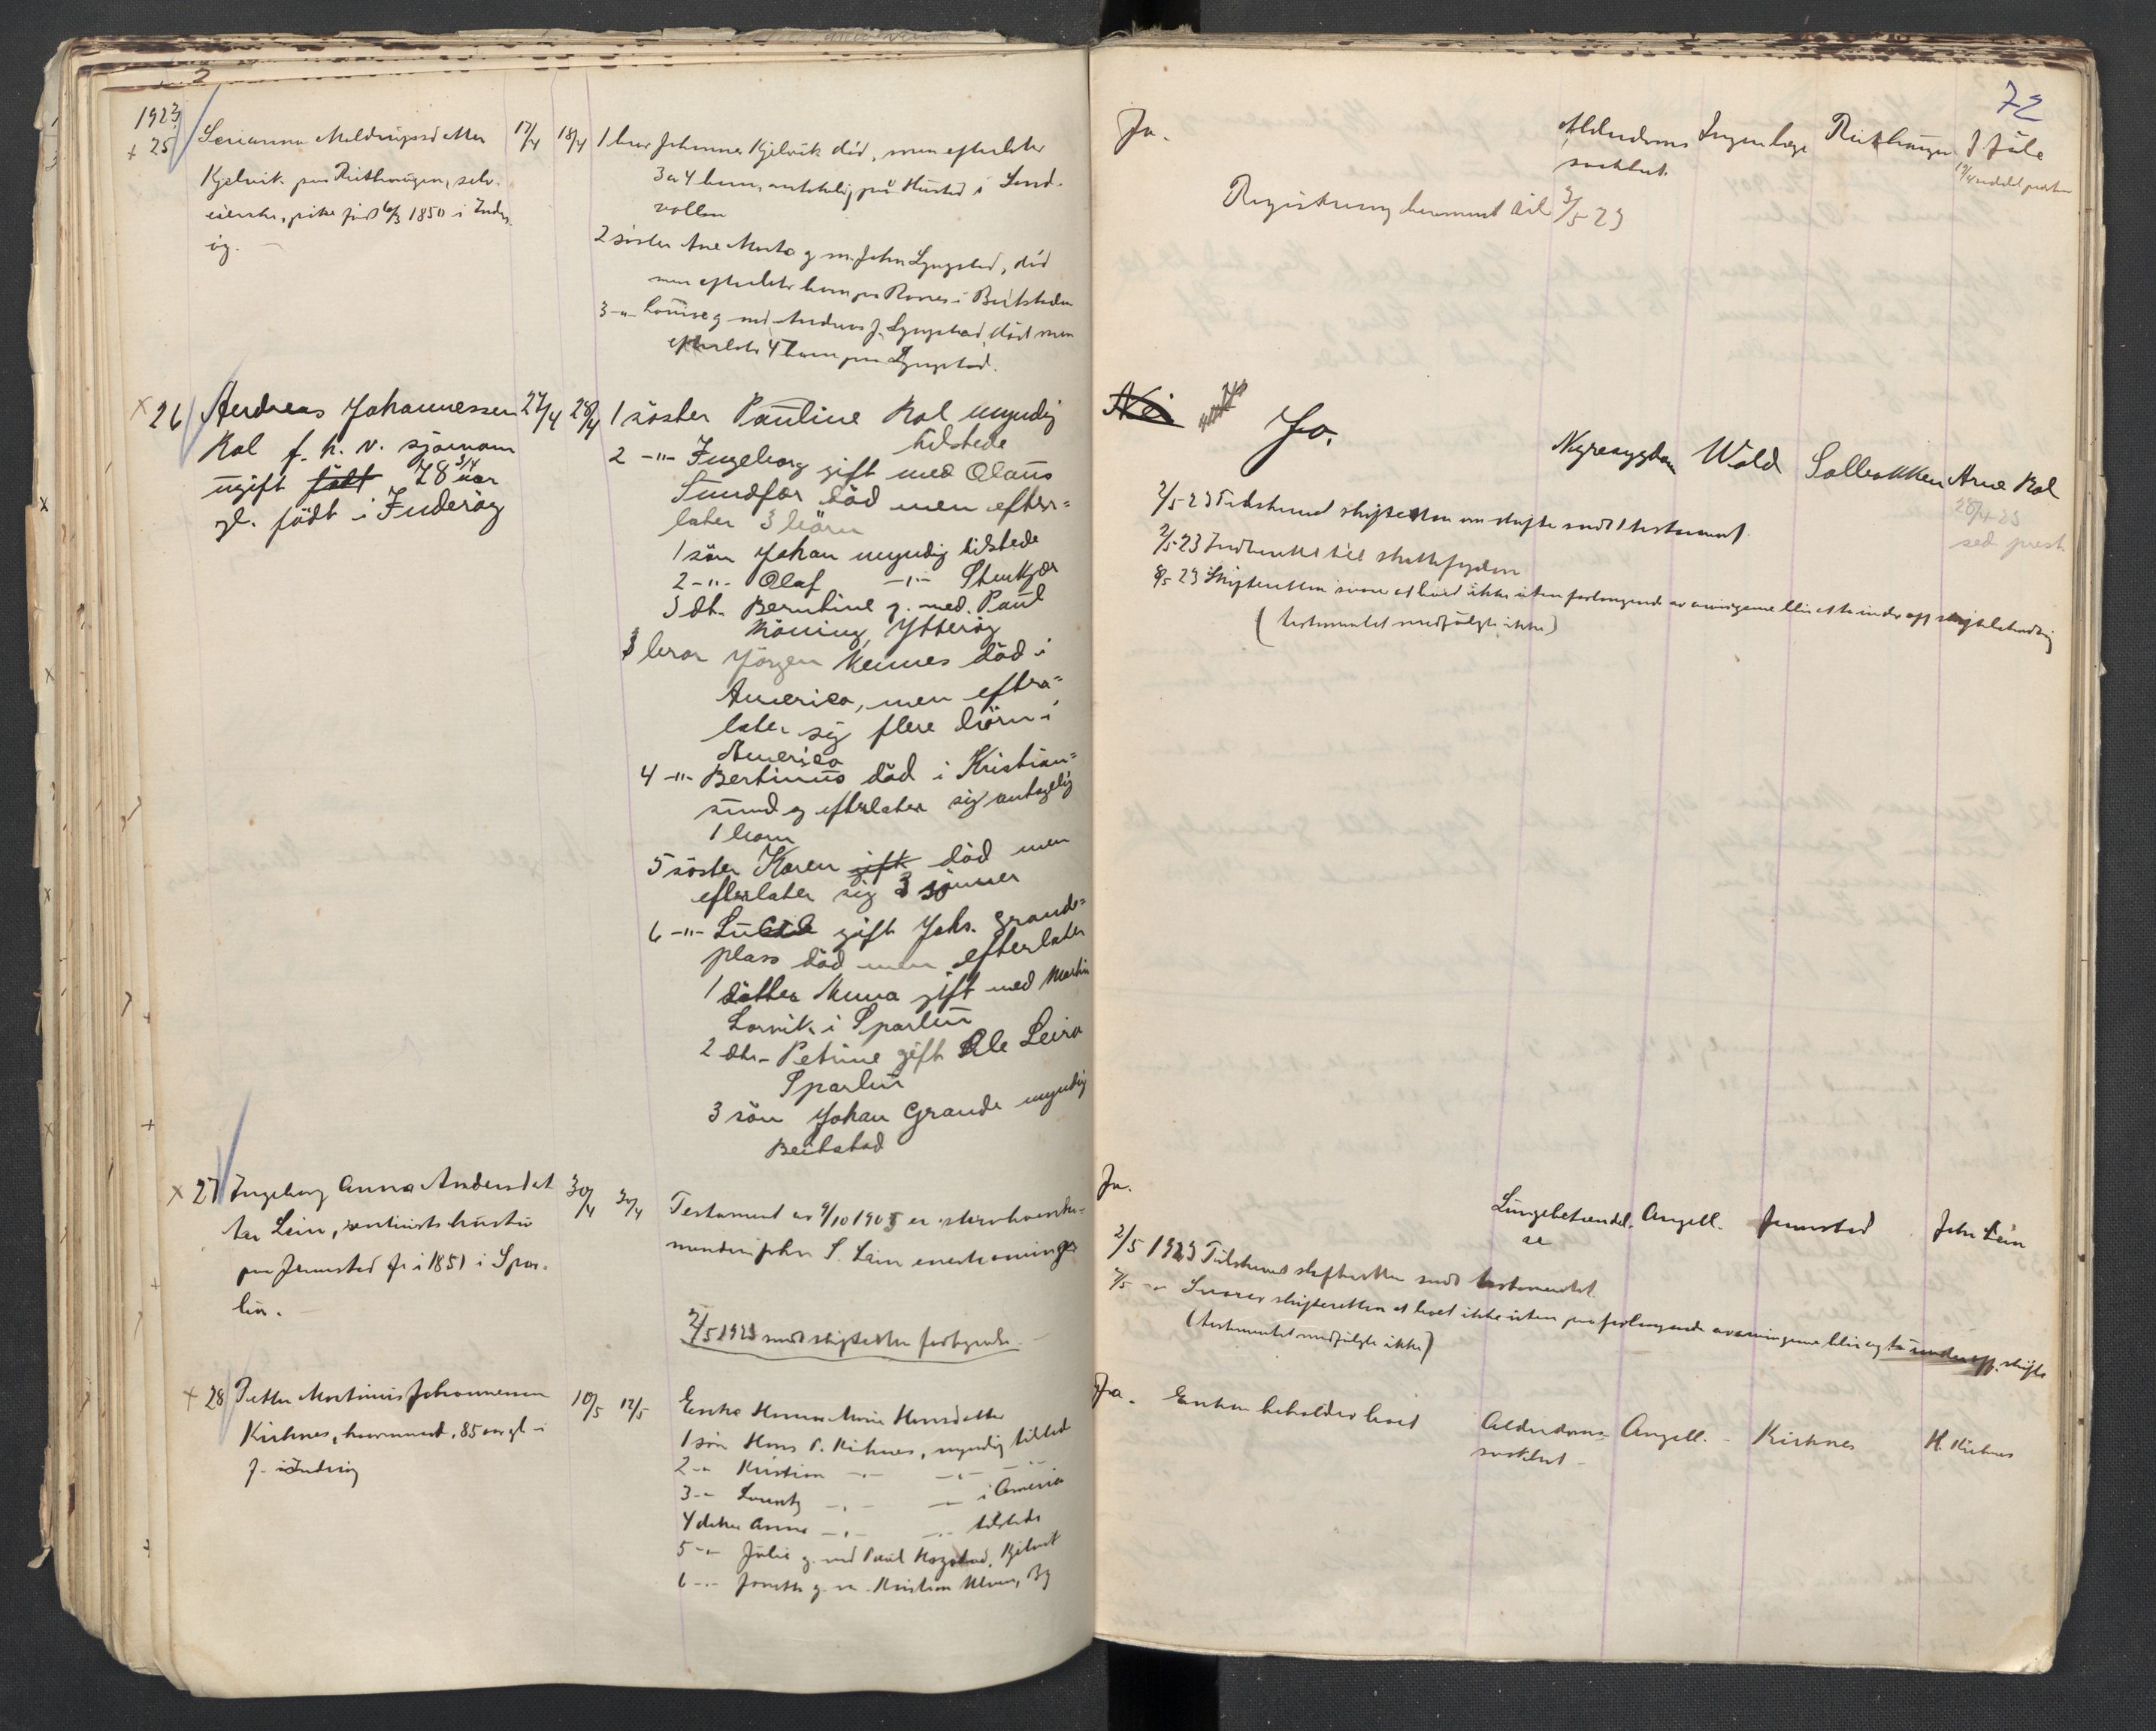 1923
+ 25 Serianna Meldrupsdatter 17/4 18/4
Kjelvik paa Reithaugen, selv-
eierske, pike född 6/3 1850 i Inder-
öy.
1 bror Johannes Kjelvik död, men efterlater
3 a 4 barn, antakelig på Hustad i Sand-
vollan
2 söster Ane Marta g m. John Lyngstad, död
men efterlater barn på i Beitstaden
3 -"- Lovise g med Andreas J. Lyngstad, död men
efterlater 4 barn paa Lyngstad.
× 26 Andreas Johannessen 27/4 28/4
Kol f. h. v. sjömann
ugift født 78 3/4 aar
gl. födt i Inderöy
1 söster Pauline Kol myndig
tilstede
2 -"- Ingeborg gift med Olaus
Sundfær död men efter=
later 3 börn
1 sön Johan myndig tilstede
2 -"- Olaf -"- Stenkjær
3 dt. Berntine g. med. Paul
Köning, Ytteröy
3 bror Jörgen död i
America, men efter=
later sig flere börn i
America
4 -"- Bertinus död i Kristian=
sund og efterlater sig antagelig
1 barn
5 söster Karen gift död men
efterlater sig 3 sönner
6 -"- gift Johs. Grande=
plass död men efterlater
1 datter Anna gift med Martin
Lorvik i Sparbu
2 dtr. Petrine gift Ole Leira
Sparbu
3 sön Johan Grande myndig
Beitstad
× 27 Ingeborg Anna Andersdat 30/4 30/4
ter Lein, hustru
paa Jennstad f. i 1851 i Spar-
bu.
Testament av 9/10 1905 er
manden John S. Lein
2/5 1923 sendt skifteretten
+ 28 Petter Martinus Johannessen 10/5 12/5
Kirknes, kaarmand, 85 aar gl.
f. i Inderöy
Enke Hanna Marie Hansdatter
1 sön Hans P. Kirknes, myndig tilsted
2 -"- Kristian -"- -"-
3 -"- Lorentz -"- -"- i America
4 datter Anna -"- -"- tilstede
5 -"- Julie g. med Paul
6 -"- Jonette g. m. Kristian
72
Ja. Alderdoms Ingen læge Reithaugen J Jule
svakhet.
Registrering berammet til 3/5-23
Nei
Ja. Nyresygdom Wold Solbakken Arne Kol
28/4-23
sed. prest
2/5-23 Tilskrevet skifteretten om skifte sendt testament
2/5-23 Indberettet til skattefogden
8/5 23 Skifteretten svarer at boet ikke uten forlangende av arvingene blir at ta under off skiftebehandling
(testamentet medfulgte ikke)
Ja. Lungebetændel- Angell. Jennstad John Lein
se
2/5 1923 Tilskrevet skifteretten sendt testamentet.
8/5 -"- Svarer skifteretten at boet ikke uten paa forlangende av arvingene blir at ta under off. skifte
(testamentet medfulgte ikke)
Ja. Enken beholder boet Alderdoms- Angell. Kirknes H. Kirknes
svakhet